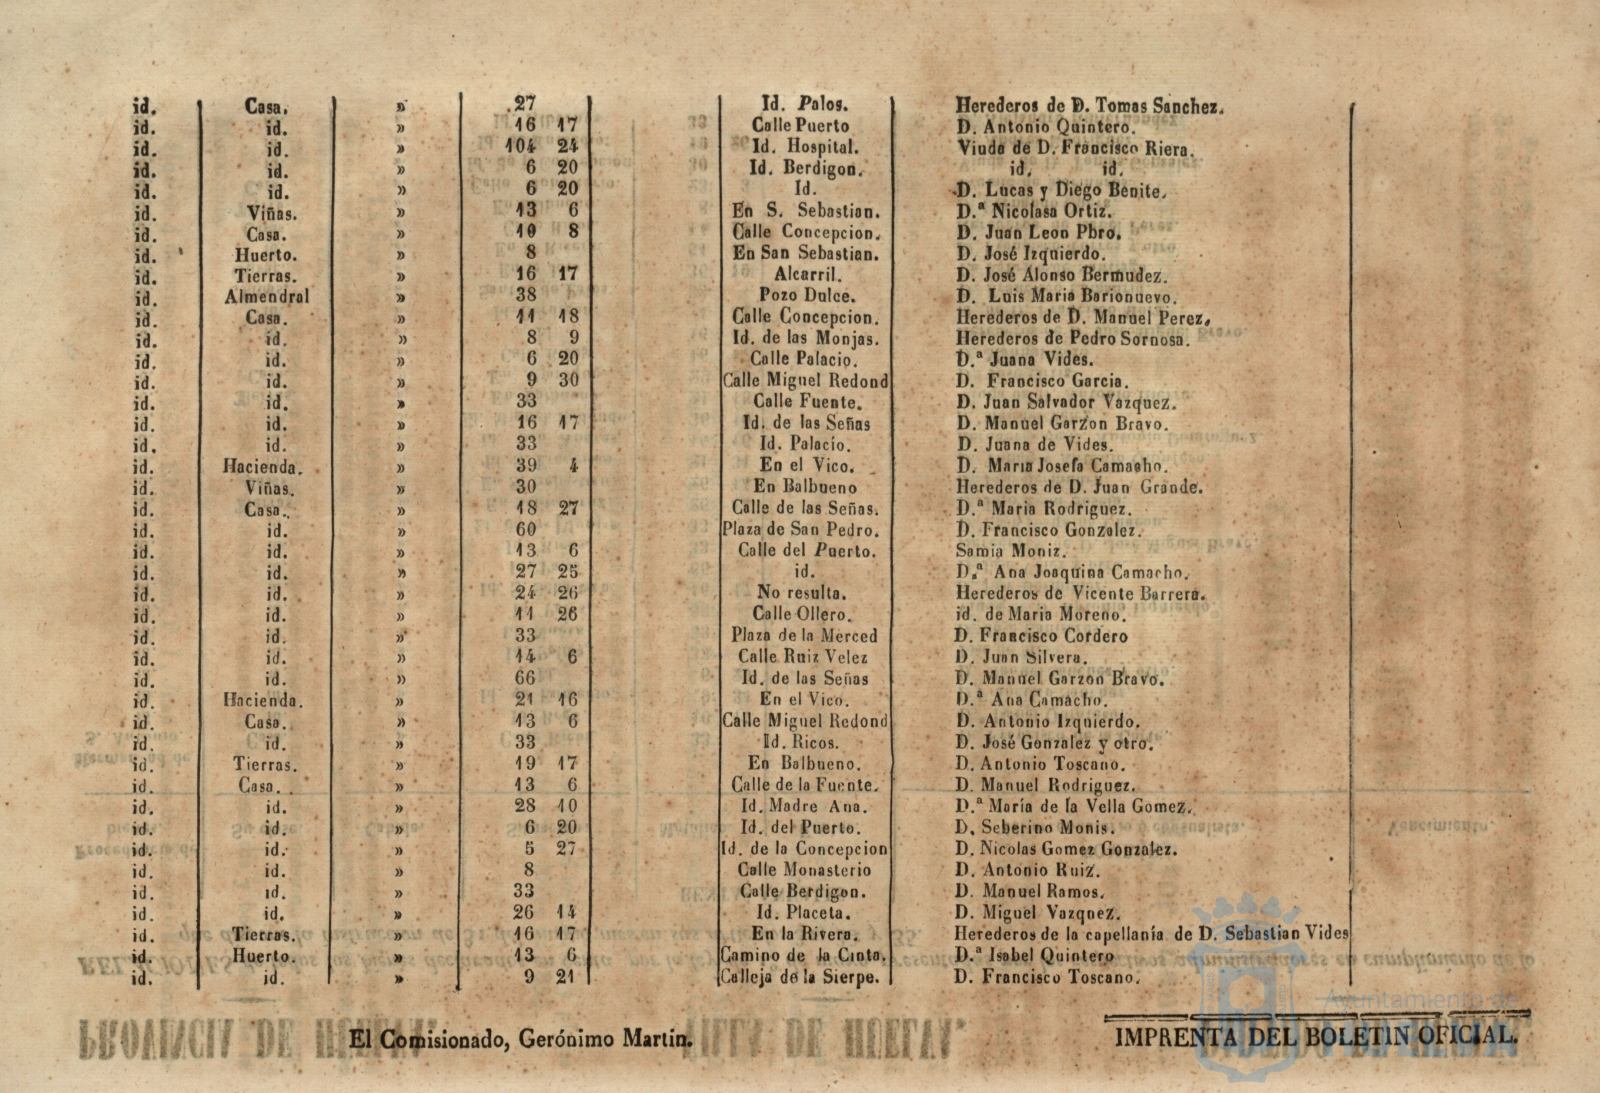 id. Casa. » 27 Id. Palos. Herederos de D. Tomas Sanchez.
id. id. » 16 17 Calle Puerto D. Antonio Quintero.
id. id. » 104 24 Id. Hospital. Viuda de D. Francisco Riera.
id. id. » 6 20 Id. Berdigon. id. id.
id. id. » 6 20 Id. D. Lucas y Diego Benite.
id. Viñas. » 13 6 En S. Sebastian. D.ª Nicolasa Ortiz.
id. Casa. » 10 8 Calle Concepcion. D. Juan Leon Pbro.
id. Huerto. » 8 En San Sebastian. D. José Izquierdo.
id. Tierras. » 16 17 Alcarril. D. José Alonso Bermudez.
id. Almendral » 38 Pozo Dulce. D. Luis Maria Barionuevo.
id. Casa. » 11 18 Calle Concepcion. Herederos de D. Manuel Perez,
id. id. » 8 9 Id. de las Monjas. Herederos de Pedro Sornosa.
id. id. » 6 20 Calle Palacio. D.ª Juana Vides.
id. id. » 9 30 Calle Miguel Redond D. Francisco Garcia.
id. id. » 33 Calle Fuente. D. Juan Salvador Vazquez.
id. id. » 16 17 Id. de las Señas D. Manuel Garzon Bravo.
id. id. » 33 Id. Palacio. D. Juana de Vides.
id. Hacienda. » 39 4 En el Vico. D. Maria Josefa Camacho.
id. Viñas. » 30 En Balbueno Herederos de D. Juan Grande.
id. Casa. » 18 27 Calle de las Señas. D.ª Maria Rodriguez.
id. id. » 60 Plaza de San Pedro. D. Francisco Gonzalez.
id. id. » 13 6 Calle del Puerto. Samia Moniz.
id. id. » 27 25 id. D.ª Ana Joaquina Camacho.
id. id. » 24 26 No resulta. Herederos de Vicente Barrera.
id. id. » 11 26 Calle Ollero. id. de Maria Moreno.
id. id. » 33 Plaza de la Merced D. Francisco Cordero
id. id. » 14 6 Calle Ruiz Velez D. Juan Silvera.
id. id. » 66 Id. de las Señas D. Manuel Garzon Bravo.
id. Hacienda. » 21 16 En el Vico. D.ª Ana Camacho.
id. Casa. » 13 6 Calle Miguel Redond D. Antonio Izquierdo.
id. id. » 33 Id. Ricos. D. José Gonzalez y otro.
id. Tierras. » 19 17 En Balbueno. D. Antonio Toscano.
id. Casa. » 13 6 Calle de la Fuente. D. Manuel Rodriguez.
id. id. » 28 10 Id. Madre Ana. D.ª María de la Vella Gomez.
id. id. » 6 20 Id. del Puerto. D. Seberino Monis.
id. id. » 5 27 Id. de la Concepcion D. Nicolas Gomez Gonzalez.
id. id. » 8 Calle Monasterio D. Antonio Ruiz.
id. id. » 33 Calle Berdigon. D. Manuel Ramos.
id. id. » 26 14 Id. Placeta. D. Miguel Vazquez.
id. Tierras. » 16 17 En la Rivera. Herederos de la capellanía de D. Sebastian Vides
id. Huerto. » 13 6 Camino de la Cinta. D.ª Isabel Quintero
id. id. » 9 21 Calleja de la Sierpe. D. Francisco Toscano.
Ayuntamiento de
El Comisionado, Gerónimo Martin.
IMPRENTA DEL BOLETIN OFICIAL.